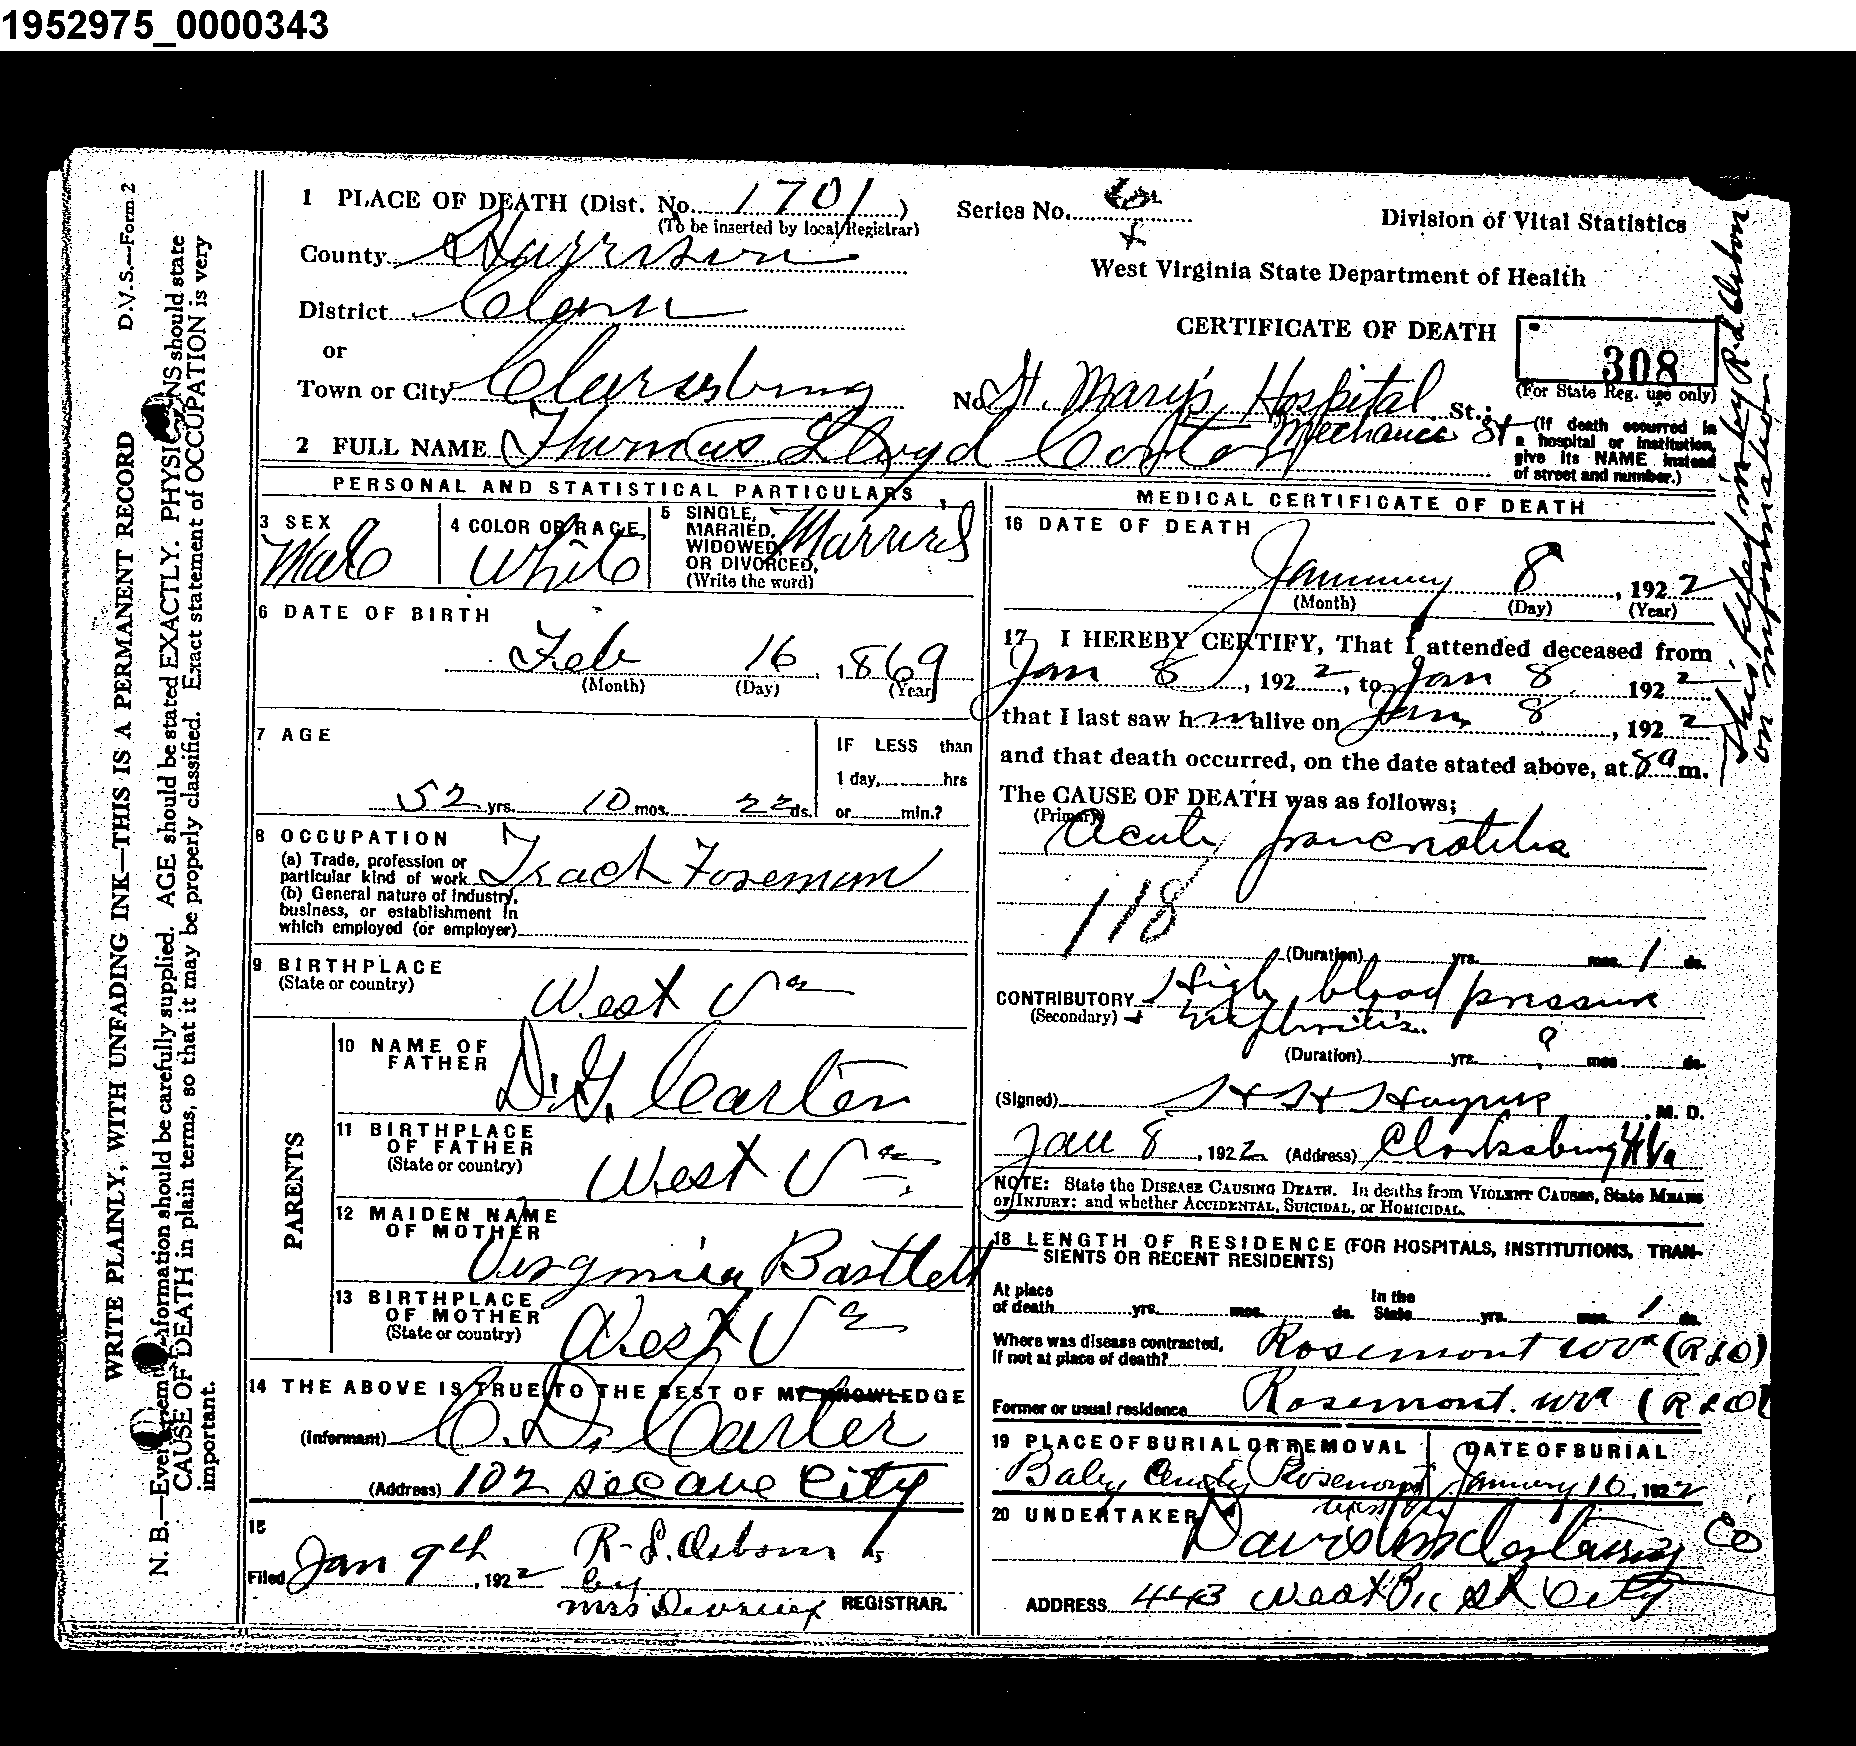 1952975_0000343
D.V.S.—Form 2
WRITE PLAINLY, WITH UNFADING INK—THIS IS A PERMANENT RECORD
N. B.—Every item of information should be carefully supplied. AGE should be stated EXACTLY. PHYSICIANS should state
CAUSE OF DEATH in plain terms, so that it may be properly classified. Exact statement of OCCUPATION is very
important.
1 PLACE OF DEATH (Dist. No. 1701)
(To be inserted by local Registrar)
County Harrison
District Clark
or
Town or City Clarksburg
Series No.
Division of Vital Statistics
West Virginia State Department of Health
CERTIFICATE OF DEATH
308
(For State Reg. use only)
No. St. Mary's Hospital St.;
Mechanic St
(If death occurred in
a hospital or institution,
give its NAME instead
of street and number.)
2 FULL NAME Thomas Lloyd Carter
PERSONAL AND STATISTICAL PARTICULARS
3 SEX
Male
4 COLOR OR RACE
White
5 SINGLE,
MARRIED,
WIDOWED
OR DIVORCED,
(Write the word)
Married
6 DATE OF BIRTH
Feb 16, 1869
(Month) (Day) (Year)
7 AGE
52 yrs. 10 mos. 22 ds.
IF LESS than
1 day, hrs
or min.?
8 OCCUPATION
(a) Trade, profession or
particular kind of work Track Foreman
(b) General nature of industry,
business, or establishment in
which employed (or employer)
9 BIRTHPLACE
(State or country)
West Va
PARENTS
10 NAME OF
FATHER
D. G. Carter
11 BIRTHPLACE
OF FATHER
(State or country)
West Va
12 MAIDEN NAME
OF MOTHER
Virginia Bartlett
13 BIRTHPLACE
OF MOTHER
(State or country)
West Va
14 THE ABOVE IS TRUE TO THE BEST OF MY KNOWLEDGE
(Informant) C. D. Carter
(Address) 102 Sec ave City
15
Filed Jan 9th, 1922 R. S. Osborn
by
Mrs
REGISTRAR.
MEDICAL CERTIFICATE OF DEATH
16 DATE OF DEATH
January 8, 1922
(Month) (Day) (Year)
17 I HEREBY CERTIFY, That I attended deceased from
Jan 8, 1922, to Jan 8 1922
that I last saw h im alive on Jan 8, 1922
and that death occurred, on the date stated above, at 8 a m.
The CAUSE OF DEATH was as follows;
(Primary)
Acute pancreatitis
118
(Duration) yrs. mos. 1 ds.
CONTRIBUTORY High blood pressure
(Secondary) + nephritis.
(Duration) yrs. ? mos. ds.
(Signed) H H Haynes, M. D.
Jan 8, 1922 (Address) Clarksburg W Va
NOTE: State the DISEASE CAUSING DEATH. In deaths from VIOLENT CAUSES, State MEANS
OF INJURY; and whether ACCIDENTAL, SUICIDAL, or HOMICIDAL.
18 LENGTH OF RESIDENCE (FOR HOSPITALS, INSTITUTIONS, TRAN-
SIENTS OR RECENT RESIDENTS)
At place
of death yrs. mos. ds.
In the
State yrs. mos. 1 ds.
Where was disease contracted,
If not at place of death? Rosemont W Va (RSO)
Former or usual residence Rosemont. W Va (RSO)
19 PLACE OF BURIAL OR REMOVAL
Rosemont
DATE OF BURIAL
January 10, 1922
20 UNDERTAKER
Davis Undertaking Co
ADDRESS 443 West Pic St City
This filled in by R. S. Osborn
on information